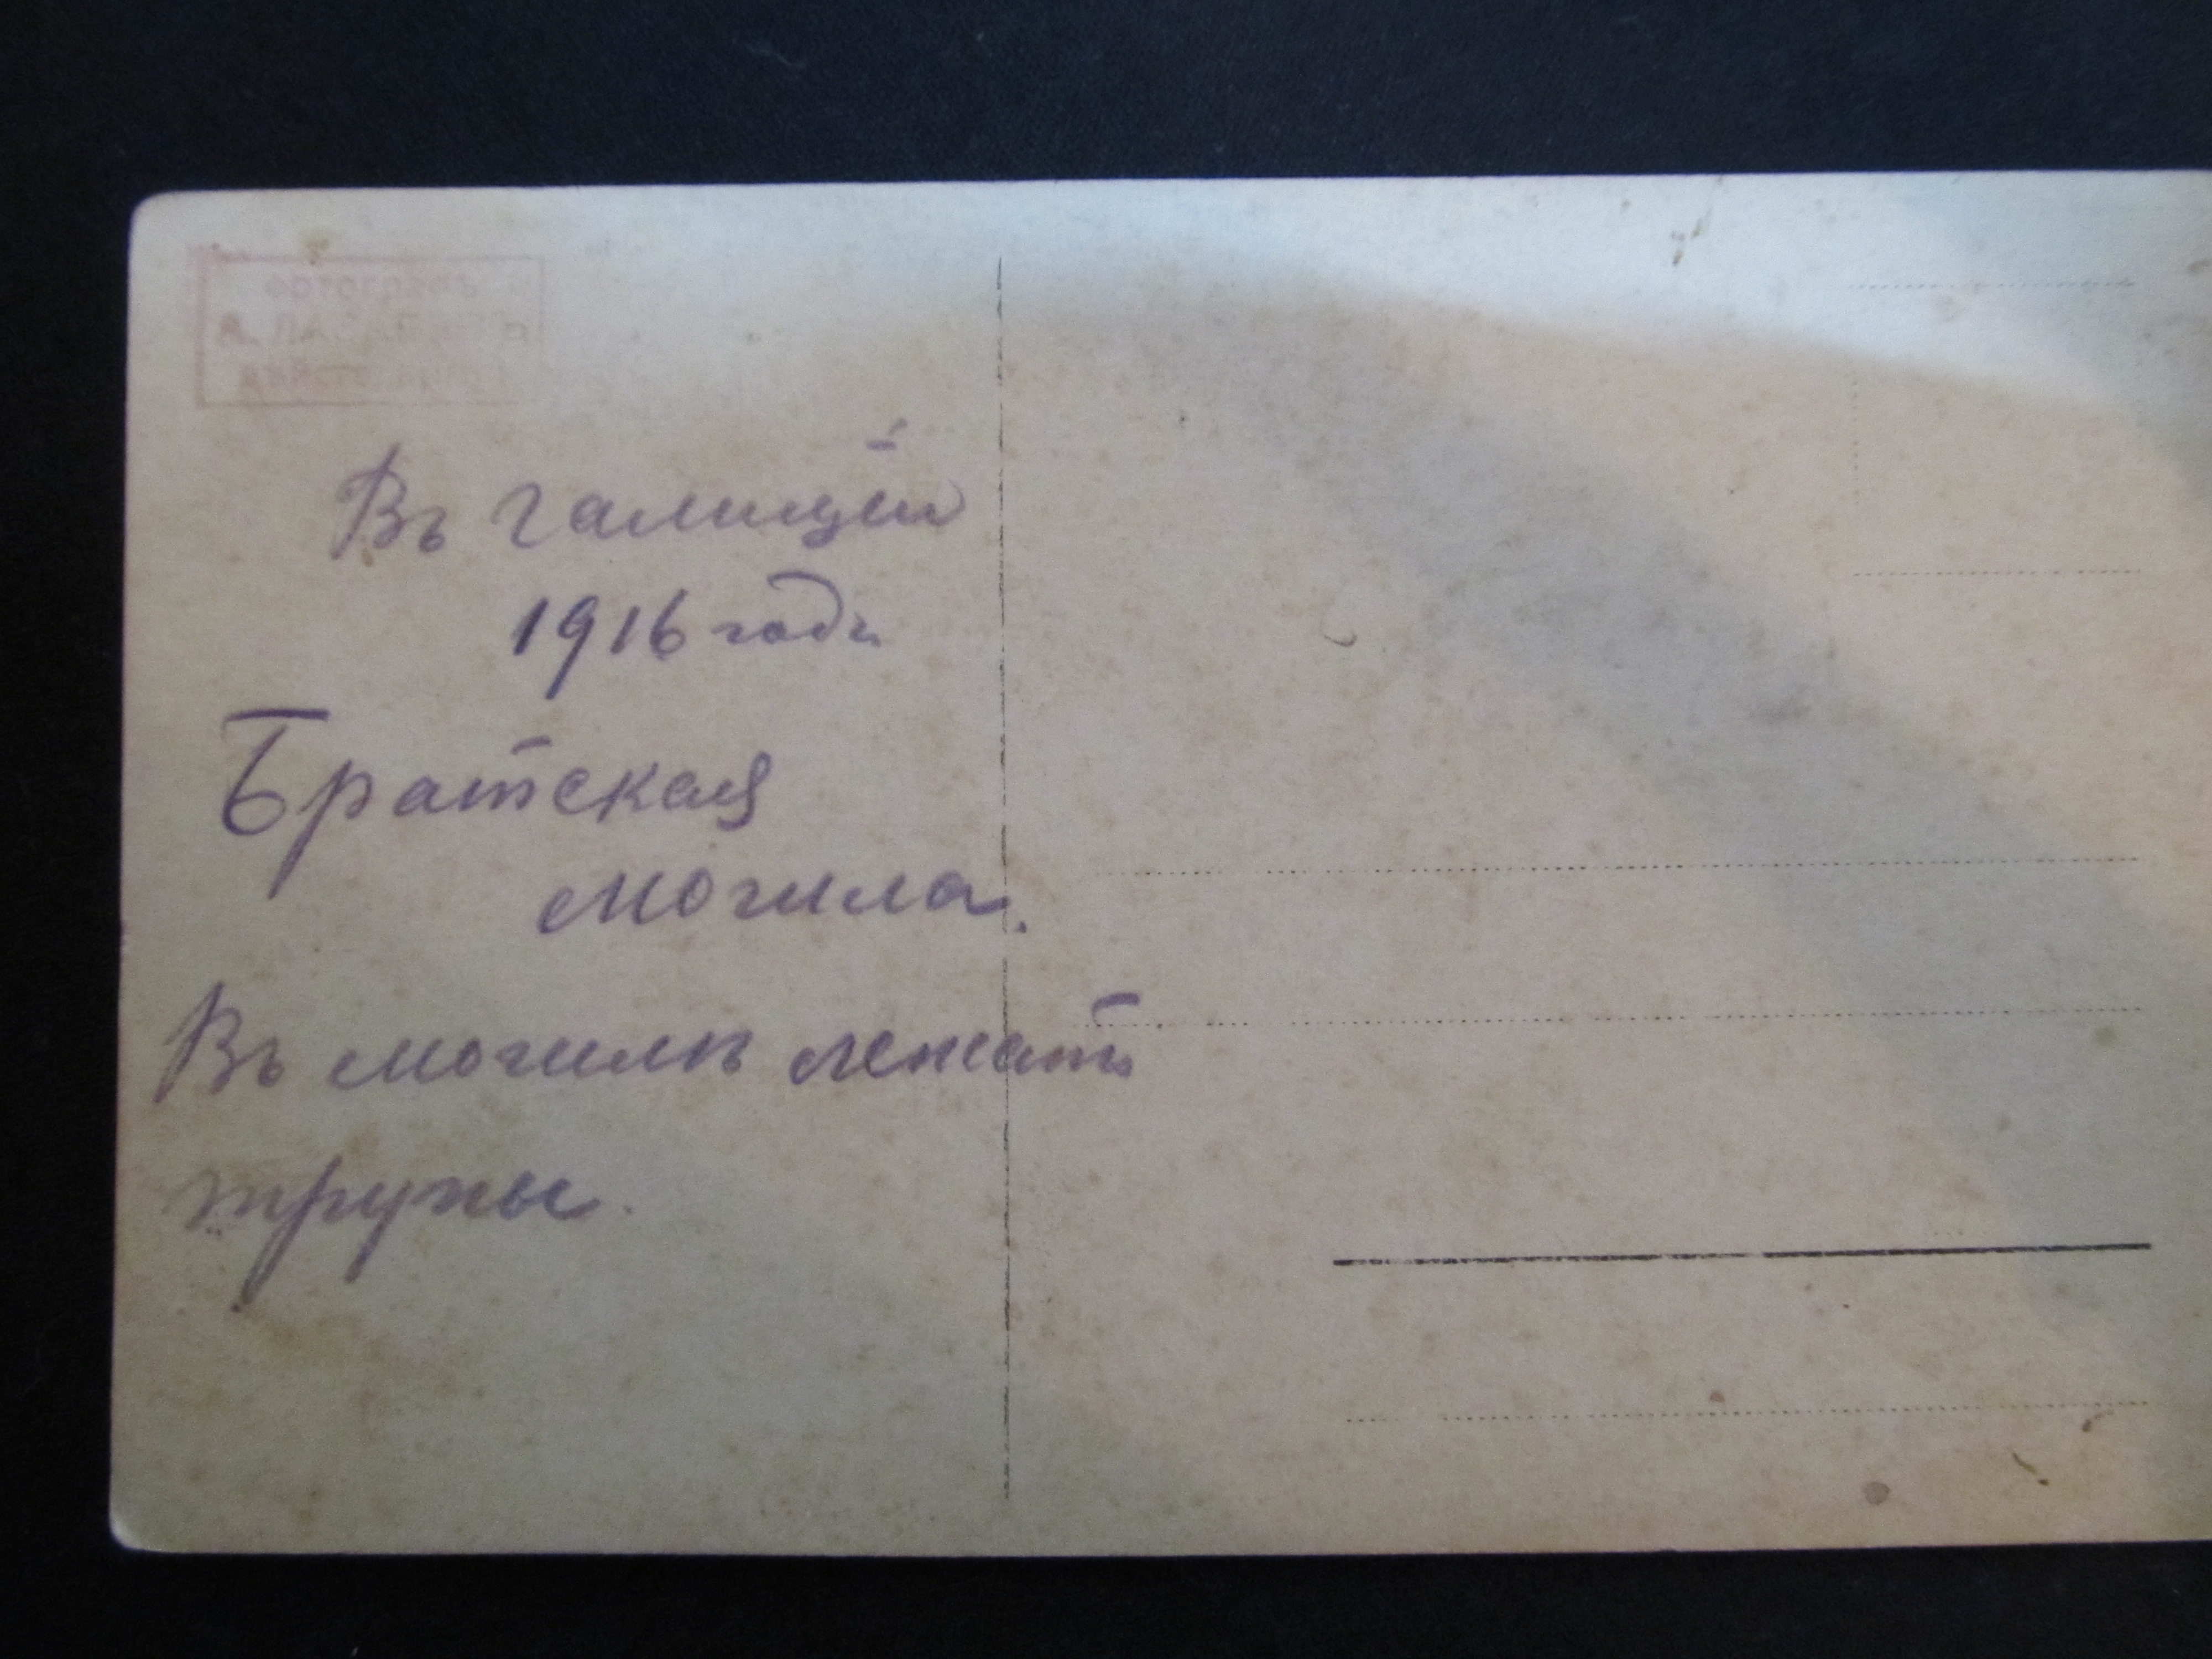 фотографъ
Въ Галиціи
1916 года
Братская
могила.
Въ могилѣ лежатъ
трупы.